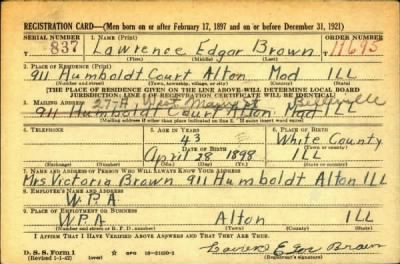 REGISTRATION CARD—(Men born on or after February 17, 1897 and on or before December 31, 1921)
SERIAL NUMBER 1. NAME (Print) ORDER NUMBER
837 Lawrence Edgar Brown 11695
(First) (Middle) (Last)
2. PLACE OF RESIDENCE (Print)
911 Humboldt Court Alton Mad ILL
(Number and street) (Town, township, village, or city) (County) (State)
[THE PLACE OF RESIDENCE GIVEN ON THE LINE ABOVE WILL DETERMINE LOCAL BOARD
JURISDICTION; LINE 2 OF REGISTRATION CERTIFICATE WILL BE IDENTICAL]
277A West Belleville
3. MAILING ADDRESS
911 Humboldt Court Alton Mad ILL
[Mailing address if other than place indicated on line 2. If same insert word same]
4. TELEPHONE 5. AGE IN YEARS 6. PLACE OF BIRTH
43 White County
DATE OF BIRTH (Town or county)
April 28 1898 ILL
(Exchange) (Number) (Mo.) (Day) (Yr.) (State or country)
7. NAME AND ADDRESS OF PERSON WHO WILL ALWAYS KNOW YOUR ADDRESS
Mrs Victoria Brown 911 Humboldt Alton ILL
8. EMPLOYER'S NAME AND ADDRESS
W.P.A
9. PLACE OF EMPLOYMENT OR BUSINESS
W.P.A Alton ILL
(Number and street or R. F. D. number) (Town) (County) (State)
I AFFIRM THAT I HAVE VERIFIED ABOVE ANSWERS AND THAT THEY ARE TRUE.
D. S. S. Form 1
(Revised 1-1-42) (over) 16—21630-2 (Registrant's signature)